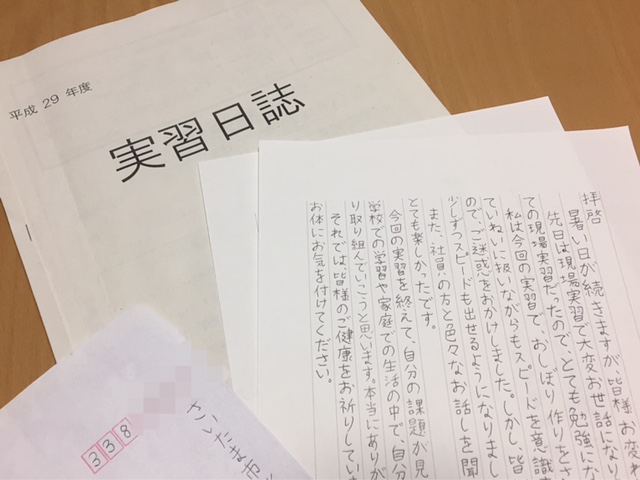 平成 29 年度
実習日誌
拝啓
暑い日が続きますが、皆様お変わ
先日は現場実習で大変お世話になり
ての現場実習だったので、とても勉強にな
私は今回の実習で、おしぼり作りをさ
ていねいに扱いながらもスピードを意識
ので、ご迷惑をおかけしました。しかし皆
少しずつスピードも出せるようになりまし
また、社員の方と色々なお話しを聞
とても楽しかったです。
今回の実習を終えて、自分の課題が見
学校での学習や家庭での生活の中で、自分
り取り組んでいこうと思います。本当にありが
それでは皆様のご健康をお祈りしていま
お体にお気を付けてください。
338
さいたま市